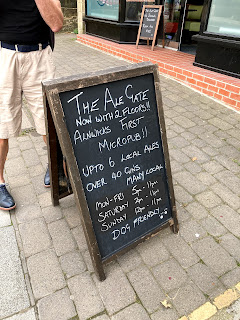 THE ALE GATE
NOW WITH 2 FLOORS!!
ALNWICKS FIRST
MICROPUB!!
UPTO 6 LOCAL ALES
OVER 40 GINS MANY LOCAL
MON-FRI 5pm - 11pm
SATURDAY 2pm - 11pm
SUNDAY 12pm - 11pm
DOG FRIENDLY